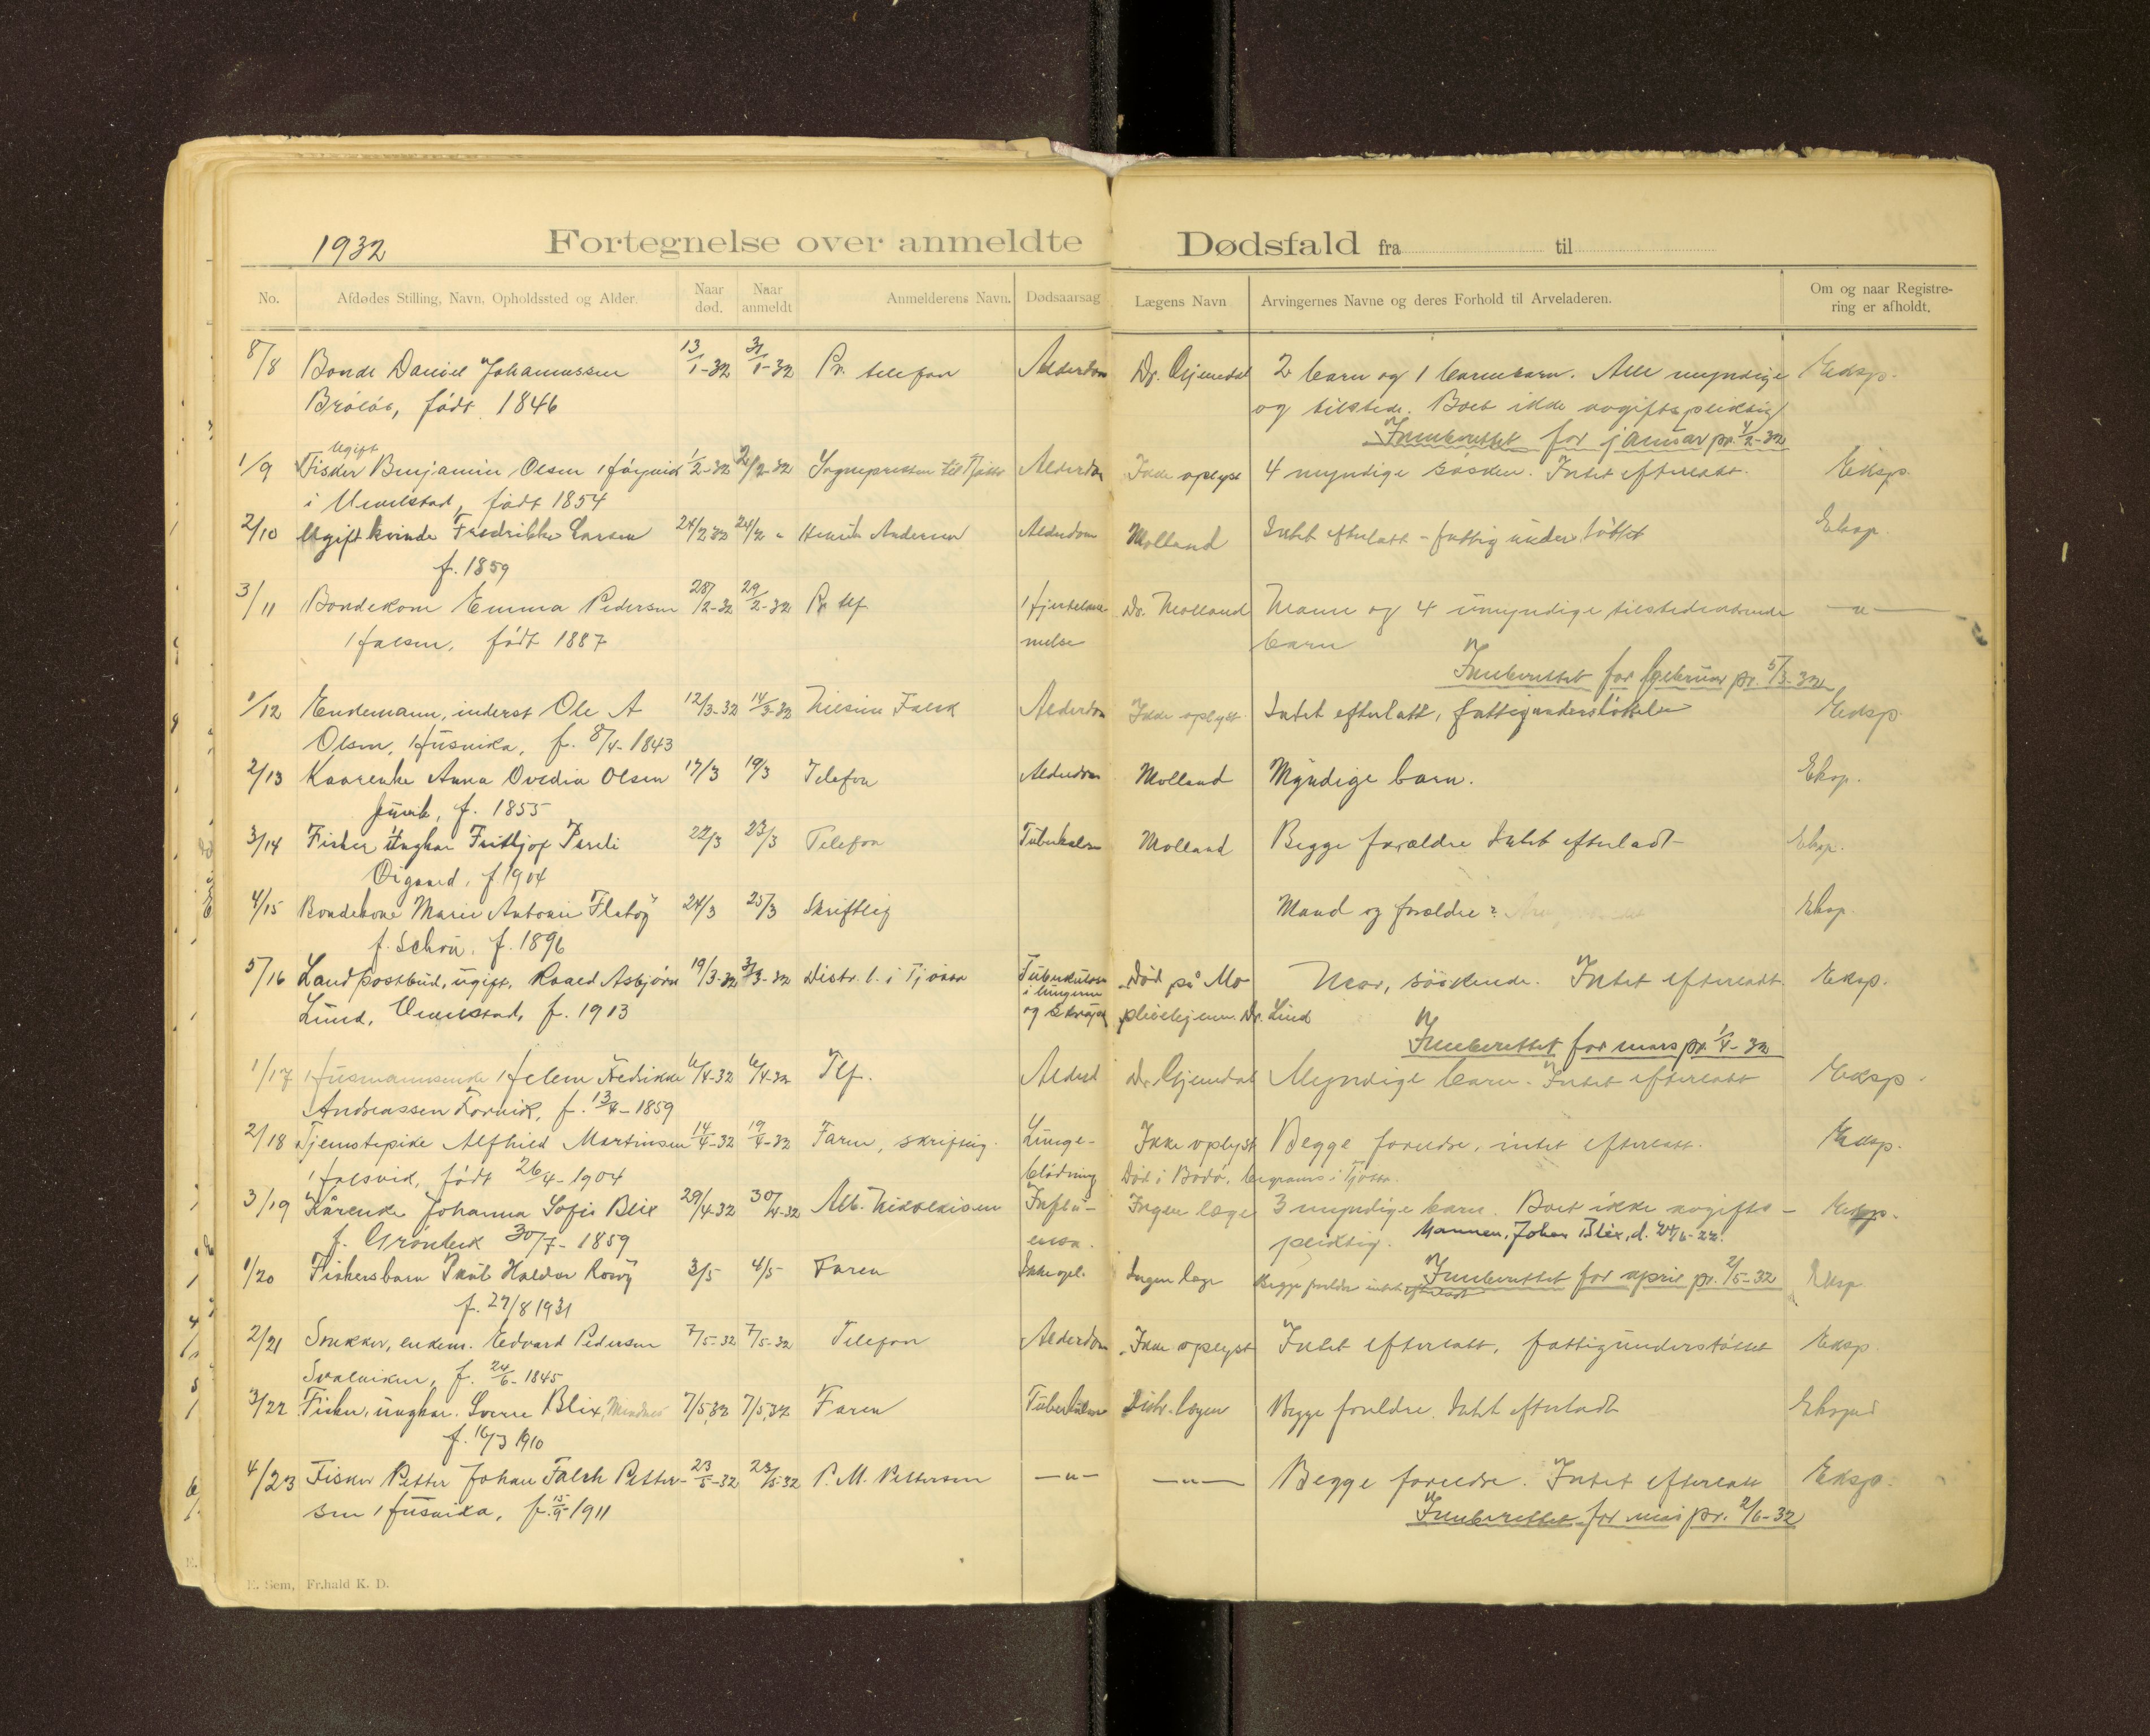 1932 Fortegnelse over anmeldte Dødsfald fra til
No. Afdødes Stilling, Navn, Opholdssted og Alder. Naar død. Naar anmeldt Anmelderens Navn. Dødsaarsag Lægens Navn Arvingernes Navne og deres Forhold til Arveladeren. Om og naar Registrering er afholdt.
8/8 Bonde Daniel Johannessen 13/1-32 31/1-32 Pr. telefon Alderdom Dr. Gjemdal 2 barn og 1 barnebarn. Alle myndige Eksp.
født 1846 og tilstede. Boet ikke avgiftspliktig
Innberettet for januar pr. 4/2-32
Ugift
1/9 Fisker Benjamin Olsen 1/2-32 2/2-32 Sognepresten til Tjøtta Alderdom Ikke oplyst 4 myndige søsken. Intet efterlatt. Eksp.
i født 1854
2/10 Ugift kvinde Fredrikke Larsen 24/2 32 24/2 " Henrik Andersen Alderdom Molland Intet efterlatt - fattigunderstøttet Eksp
f. 1859
3/11 Bondekone Emma Pedersen 28/2-32 29/2-32 Pr tlf Dr. Molland Mann og 4 umyndige tilstedeværende —"—
født 1887 melse barn
Innberettet for februar pr. 5/3-32
1/12 Enkemann, inderst Ole A 12/3-32 14/3-32 Falck Alderdom Ikke oplyst Intet efterlatt, fattigunderstøttelse Eksp.
Olsen, Husvika, f. 8/4-1843
2/13 Kaarenke Anna Ovedia Olsen 17/3 19/3 Telefon Alderdom Molland Myndige barn. Eksp.
f. 1855
3/14 Fisker Ungkar Fritljof 22/3 23/3 Telefon Tuberkulose Molland Begge forældre Intet efterladt Eksp.
f. 1904
4/15 Bondekone Marie Antonie Flatøy 24/3 25/3 Skriftlig Mand og forældre? Eksp.
f. Schou. f. 1896
5/16 Landpostbud, ugift, Roald Asbjørn 19/3-32 31/3-32 Distr. l. i Tjøtta Tuberkulose Død på Mo Mor, søskende. Intet efterladt. Eksp.
Lund, f. 1913 i lungene og strupe pleiehjem. Dr. Lind
Innberettet for mars pr. 1/4-32
1/17 Husmannsenke Helene Fredrikke 6/4-32 6/4-32 Tlf. Alderd Dr. Gjemdal Myndige barn. Intet efterlatt Eksp.
Andreassen Forvik, f. 1859
2/18 Tjenestepike Alfhild Martinsen 14/4-32 19/4-32 Faren, skriftlig. Lunge- Ikke oplyst Begge foreldre, intet efterlatt. Eksp.
født 26/4-1904 blødning Død i Bodø, begraves i Tjøtta.
3/19 Kårenke Johanna Sofie Blix 29/4-32 30/4-32 Alb. Nikolaisen Influ- Ingen læge 3 myndige barn. Boet ikke avgifts- Eksp.
f. Grønbeck 30/7-1859 ensa. pliktig. Mannen, Johan Blix, d. 24/6-22.
Innberettet for april pr. 2/5-32
1/20 Fiskersbarn Skul Haldor Rosøy 3/5 4/5 Faren Ikke opl. Ingen læge Begge foreldre intet efterladt Eksp
f. 27/8 1931
2/21 Snekker, enkem. Edvard Pedersen 7/5-32 7/5-32 Telefon Alderdom Ikke oplyst Intet efterlatt, fattigunderstøttet Eksp.
Svalviken, f. 24/6-1845
3/22 Fisker, ungkar. Sverre Blix, Mindnes 7/5 32 7/5 32 Faren Tuberkulose Distr. lægen Begge foreldre. Intet efterladt Ekspd
f. 16/3 1910
4/23 Fisker Petter Johan Falch Petter- 23/5-32 23/5-32 P. M. Pettersen —"— —"— Begge foreldre. Intet efterlatt Eksp.
sen Husvika, f. 15/9-1911
Innberettet for mai pr. 2/6-32
E. Sem, Fr.hald K. D.